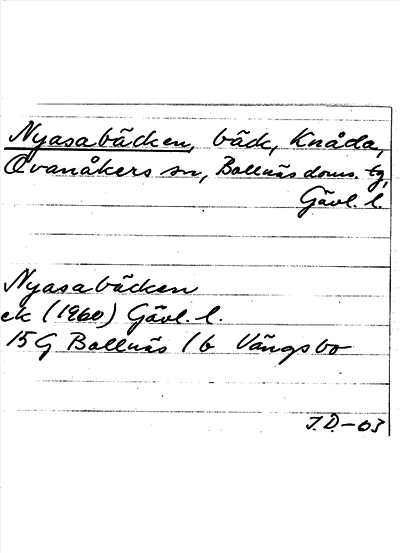 Nyasabäcken, bäck, Knåda,
Ovanåkers sn, Bollnäs doms. tg,
Gävl. l.
Nyasabäcken
ek (1960) Gävl. l.
15 G Bollnäs 1 b Vängsbo
J.D.-03